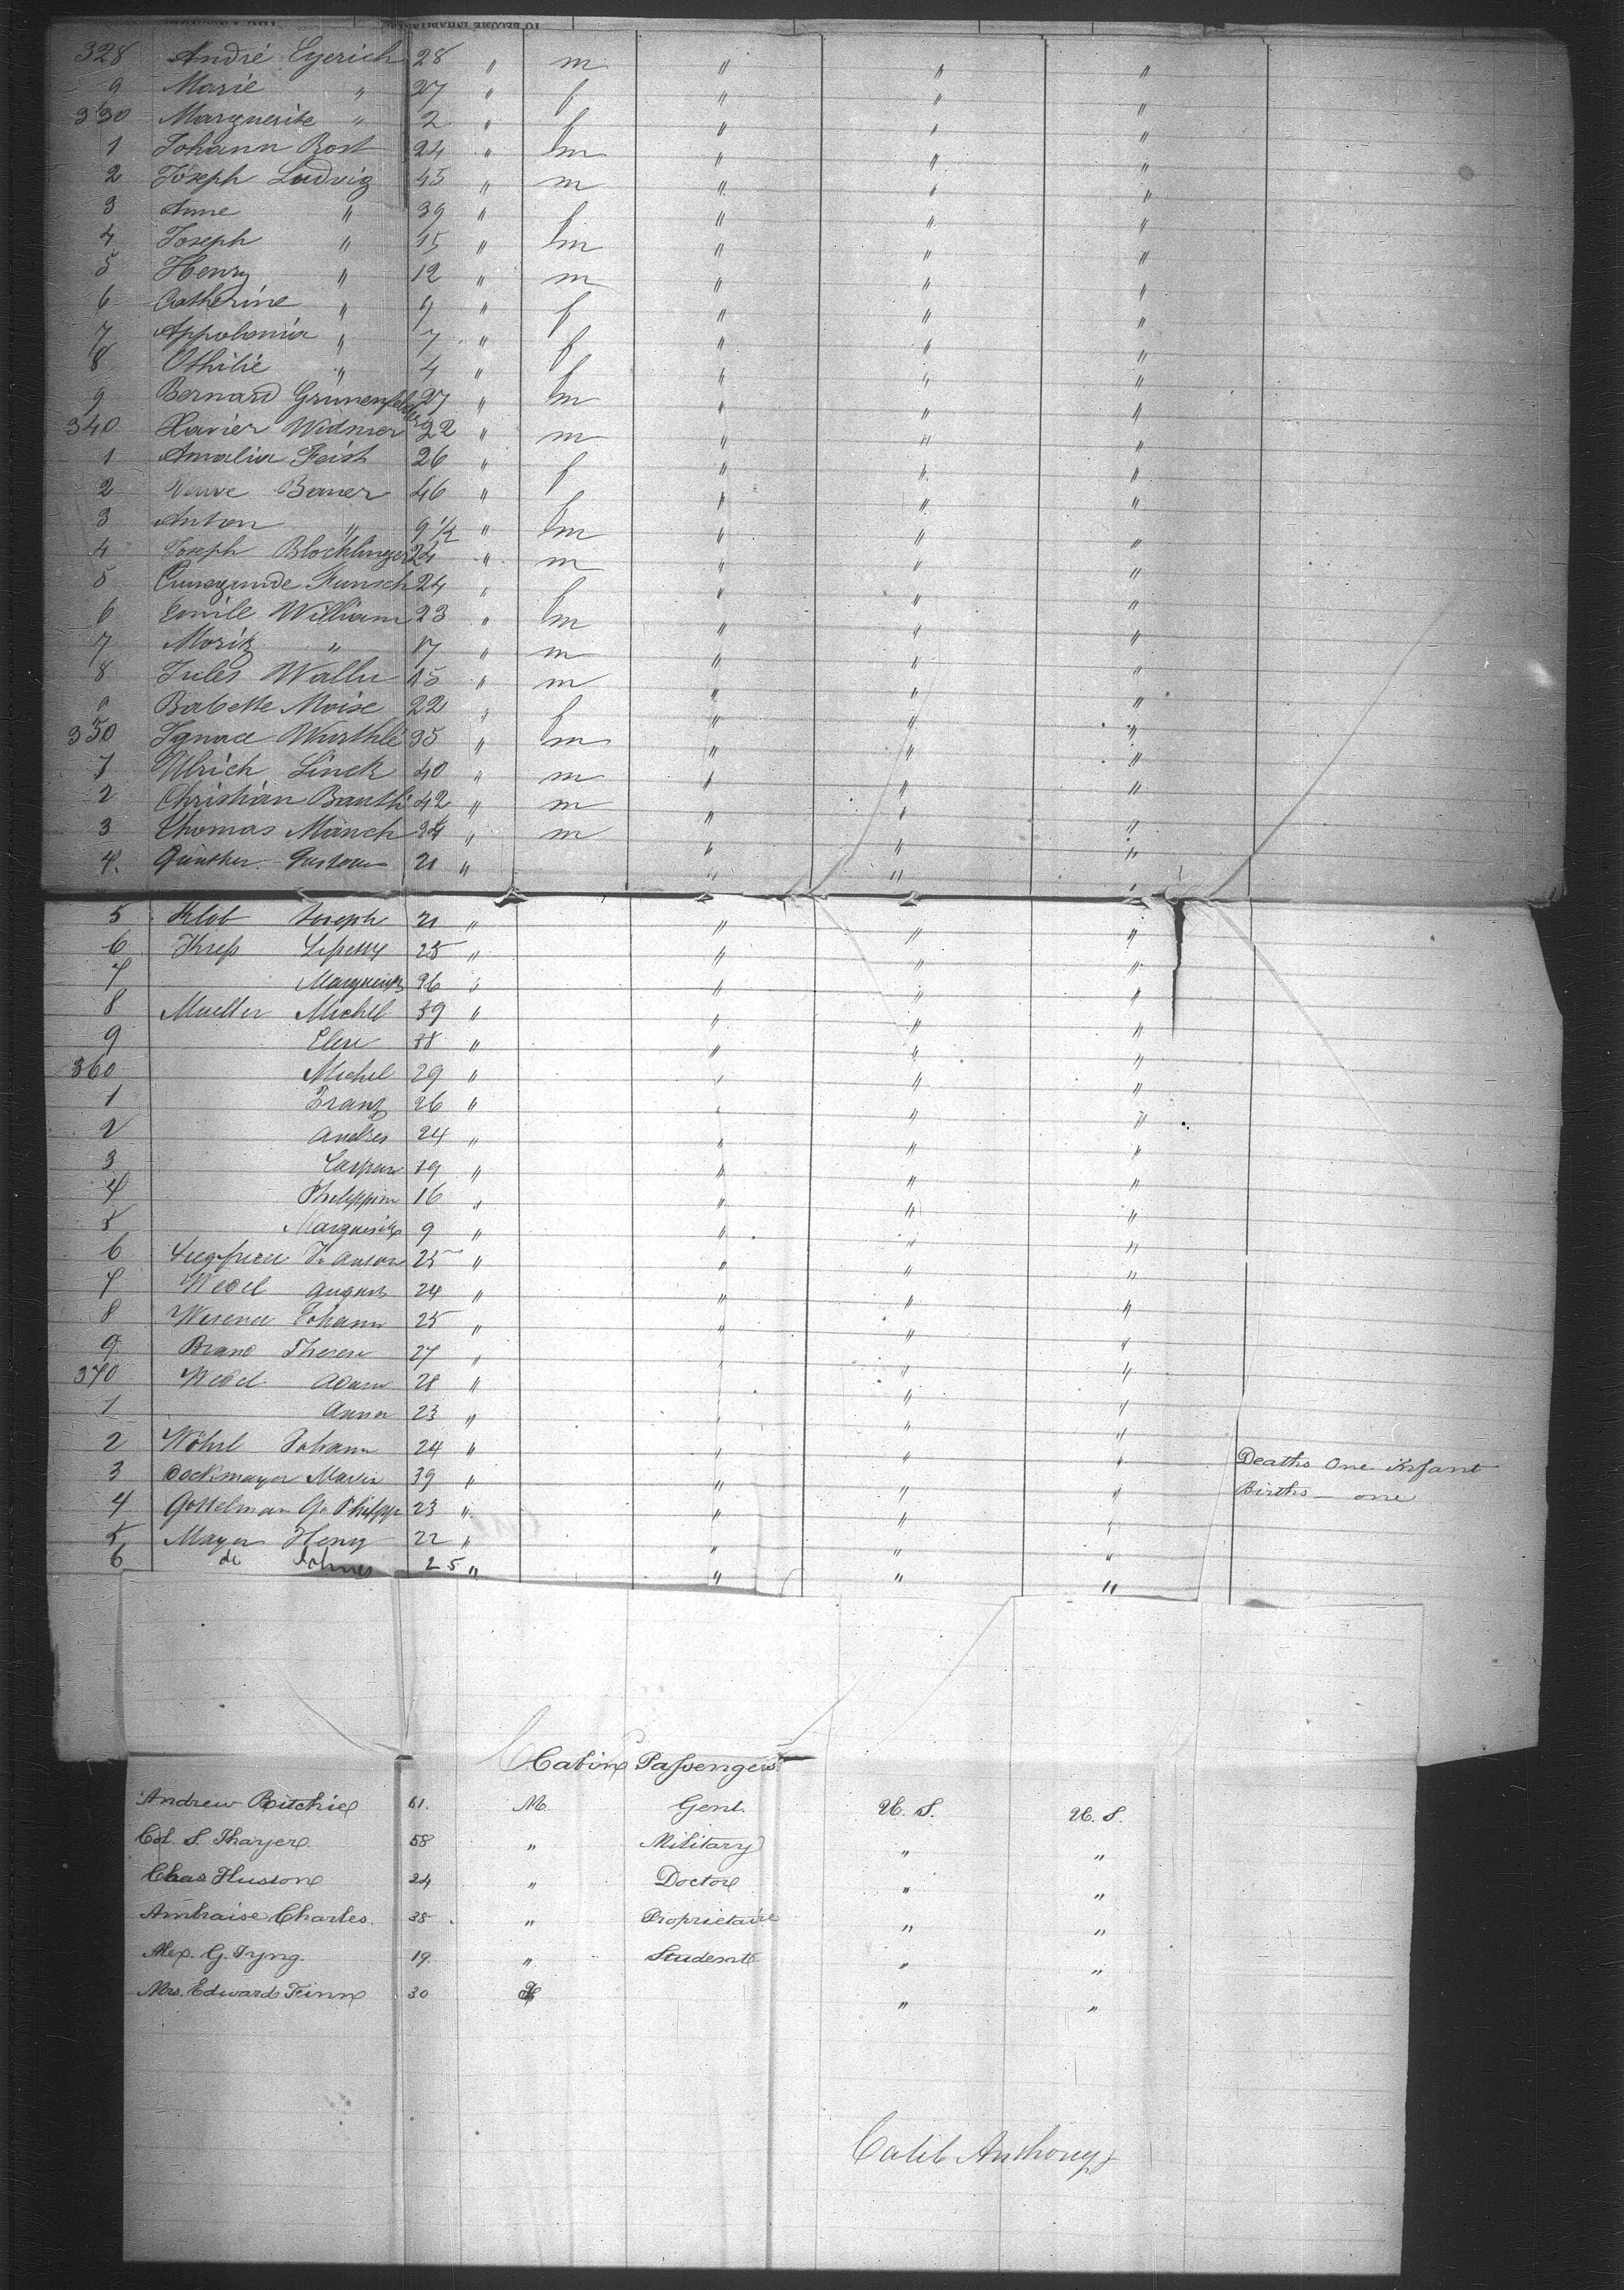 TO BECOME INHABITANTS
328 André Eyerich 28 " m " " "
9 Marie " 27 " f " " "
330 Marguerite " 2 " f " " "
1 Johann Bost 24 " m " " "
2 Joseph Ludvig 45 " m " " "
3 Anne " 39 " f " " "
4 Joseph " 15 " m " " "
5 Henry " 12 " m " " "
6 Catherine " 9 " f " " "
7 Appolonia " 7 " f " " "
8 Othilie " 4 " f " " "
9 Bernard Grünenfelder 27 " m " " "
340 Xavier Widmer 22 " m " " "
1 Amalia Feist 26 " f " " "
2 Veuve Bauer 46 " f " " "
3 Anton " 9 1/2 " m " " "
4 Joseph Blochlinger 24 " m " " "
5 Cunegunde 24 " f " " "
6 Emile William 23 " m " " "
7 Morik " 17 " m " " "
8 Jules 15 " m " " "
9 Babette Moise 22 " f " " "
350 Ignace Wurthlé 35 " m " " "
1 Ulrich Linck 40 " m " " "
2 Christian Banthi 42 " m " " "
3 Thomas Mänch 34 " m " " "
4. Günther Gustave 21 " " " "
5 Klob Joseph 21 " " " "
6 25 " " " "
7 Marguerite 26 " " " "
8 Mueller Michel 59 " " " "
9 58 " " " "
360 Michel 29 " " " "
1 Franz 26 " " " "
2 Andres 24 " " " "
3 Caspar 19 " " " "
4 Philippine 16 " " " "
5 Marguerite 9 " " " "
6 25 " " " "
7 Wedel August 24 " " " "
8 Johann 25 " " " "
9 Brand Therese 27 " " " "
370 Wedel Adam 28 " " " "
1 Anna 23 " " " "
2 Wöhrl Johann 24 " " " "
3 Dockmayer Maria 39 " " " " Deaths One infant
4 Gottelman G. Philipp 23 " " " " Births – one
5 Mayer Henry 22 " " " "
6 do 25 " " " "
Cabin Passengers
Andrew Ritchie 61. M. Gent. U. S. U. S.
Col. S. Thayer 58 " Military " "
Chas Huston 24 " Doctor " "
Ambraise Charles. 38 " Proprietaire " "
Alex. G. Tyng. 19. " Student " "
Mrs. Edward Finn 30 F " "
Caleb Anthony